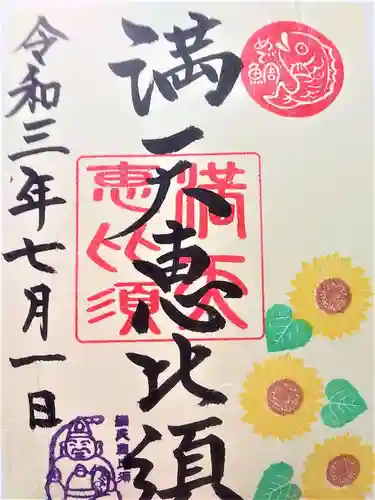 満天恵比須
令和三年七月一日
満天
恵比須
めで鯛
満天恵比須